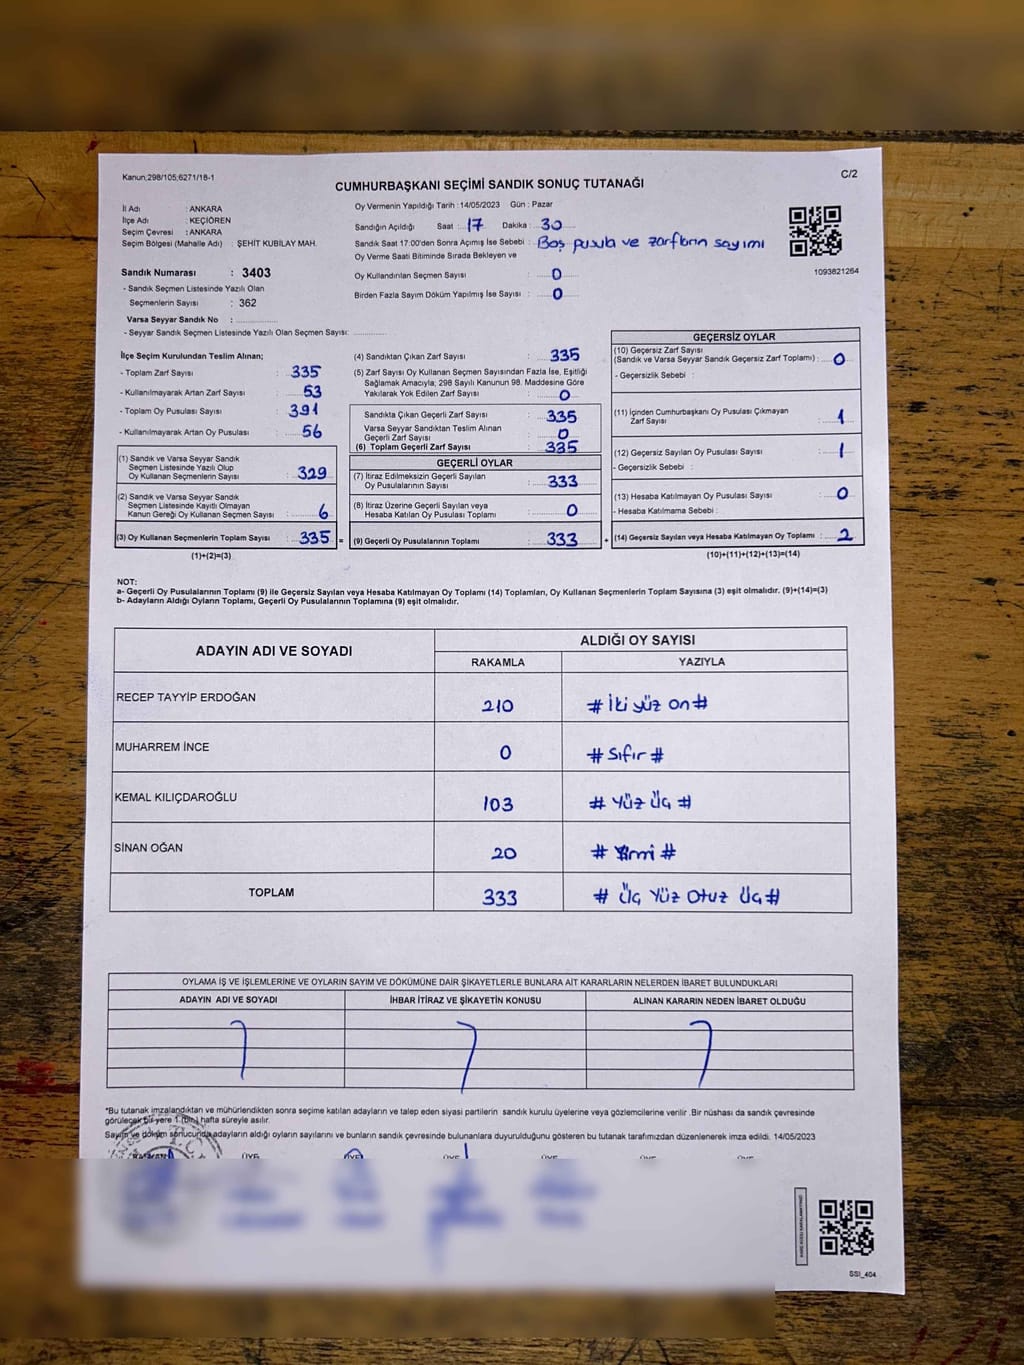 Kanun;298/105;6271/18-1
C/2
CUMHURBAŞKANI SEÇİMİ SANDIK SONUÇ TUTANAĞI
İl Adı : ANKARA
İlçe Adı : KEÇİÖREN
Seçim Çevresi : ANKARA
Seçim Bölgesi (Mahalle Adı) : ŞEHİT KUBİLAY MAH.
Sandık Numarası : 3403
- Sandık Seçmen Listesinde Yazılı Olan
Seçmenlerin Sayısı : 362
Varsa Seyyar Sandık No :
- Seyyar Sandık Seçmen Listesinde Yazılı Olan Seçmen Sayısı:
Oy Vermenin Yapıldığı Tarih : 14/05/2023 Gün : Pazar
Sandığın Açıldığı Saat : 17 Dakika : 30
Sandık Saat 17:00'den Sonra Açılmış İse Sebebi : Boş pusula ve zarfların sayımı
Oy Verme Saati Bitiminde Sırada Bekleyen ve
Oy Kullandırılan Seçmen Sayısı : 0
Birden Fazla Sayım Döküm Yapılmış İse Sayısı : 0
1093821264
İlçe Seçim Kurulundan Teslim Alınan;
- Toplam Zarf Sayısı : 335
- Kullanılmayarak Artan Zarf Sayısı : 53
- Toplam Oy Pusulası Sayısı : 391
- Kullanılmayarak Artan Oy Pusulası : 56
(1) Sandık ve Varsa Seyyar Sandık
Seçmen Listesinde Yazılı Olup
Oy Kullanan Seçmenlerin Sayısı : 329
(2) Sandık ve Varsa Seyyar Sandık
Seçmen Listesinde Kayıtlı Olmayan
Kanun Gereği Oy Kullanan Seçmen Sayısı : 6
(3) Oy Kullanan Seçmenlerin Toplam Sayısı : 335 =
(1)+(2)=(3)
(4) Sandıktan Çıkan Zarf Sayısı : 335
(5) Zarf Sayısı Oy Kullanan Seçmen Sayısından Fazla İse, Eşitliği
Sağlamak Amacıyla; 298 Sayılı Kanunun 98. Maddesine Göre
Yakılarak Yok Edilen Zarf Sayısı : 0
Sandıkta Çıkan Geçerli Zarf Sayısı : 335
Varsa Seyyar Sandıktan Teslim Alınan
Geçerli Zarf Sayısı : 0
(6) Toplam Geçerli Zarf Sayısı : 335
GEÇERLİ OYLAR
(7) İtiraz Edilmeksizin Geçerli Sayılan
Oy Pusulalarının Sayısı : 333
(8) İtiraz Üzerine Geçerli Sayılan veya
Hesaba Katılan Oy Pusulası Toplamı : 0
(9) Geçerli Oy Pusulalarının Toplamı : 333 +
GEÇERSİZ OYLAR
(10) Geçersiz Zarf Sayısı
(Sandık ve Varsa Seyyar Sandık Geçersiz Zarf Toplamı) : 0
- Geçersizlik Sebebi :
(11) İçinden Cumhurbaşkanı Oy Pusulası Çıkmayan
Zarf Sayısı : 1
(12) Geçersiz Sayılan Oy Pusulası Sayısı : 1
- Geçersizlik Sebebi :
(13) Hesaba Katılmayan Oy Pusulası Sayısı : 0
- Hesaba Katılmama Sebebi :
(14) Geçersiz Sayılan veya Hesaba Katılmayan Oy Toplamı : 2
(10)+(11)+(12)+(13)=(14)
NOT:
a- Geçerli Oy Pusulalarının Toplamı (9) ile Geçersiz Sayılan veya Hesaba Katılmayan Oy Toplamı (14) Toplamları, Oy Kullanan Seçmenlerin Toplam Sayısına (3) eşit olmalıdır. (9)+(14)=(3)
b- Adayların Aldığı Oyların Toplamı, Geçerli Oy Pusulalarının Toplamına (9) eşit olmalıdır.
ADAYIN ADI VE SOYADI ALDIĞI OY SAYISI
RAKAMLA YAZIYLA
RECEP TAYYİP ERDOĞAN 210 # İki yüz on #
MUHARREM İNCE 0 # Sıfır #
KEMAL KILIÇDAROĞLU 103 # Yüz Üç #
SİNAN OĞAN 20 # Yirmi #
TOPLAM 333 # Üç Yüz Otuz Üç #
OYLAMA İŞ VE İŞLEMLERİNE VE OYLARIN SAYIM VE DÖKÜMÜNE DAİR ŞİKAYETLERLE BUNLARA AİT KARARLARIN NELERDEN İBARET BULUNDUKLARI
ADAYIN ADI VE SOYADI İHBAR İTİRAZ VE ŞİKAYETİN KONUSU ALINAN KARARIN NEDEN İBARET OLDUĞU
*Bu tutanak imzalandıktan ve mühürlendikten sonra seçime katılan adayların ve talep eden siyasi partilerin sandık kurulu üyelerine veya gözlemcilerine verilir .Bir nüshası da sandık çevresinde
görülecek bir yere 1 (bir) hafta süreyle asılır.
Sayım ve döküm sonucunda adayların aldığı oyların sayılarını ve bunların sandık çevresinde bulunanlara duyurulduğunu gösteren bu tutanak tarafımızdan düzenlenerek imza edildi. 14/05/2023
SSI_404